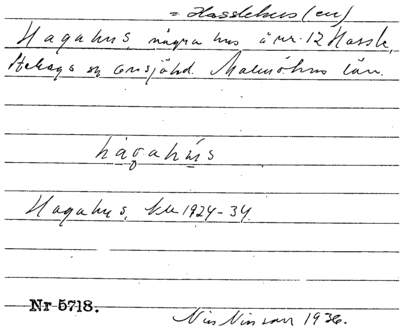 = Hasslehus (en)
Hagahus, några hus å nr. 12 Hassle,
sn Onsjöhd. Malmöhus län.
hágahús
Hagahus, 1924-34.
Nr 5718.
Nils Nilsson 1936.